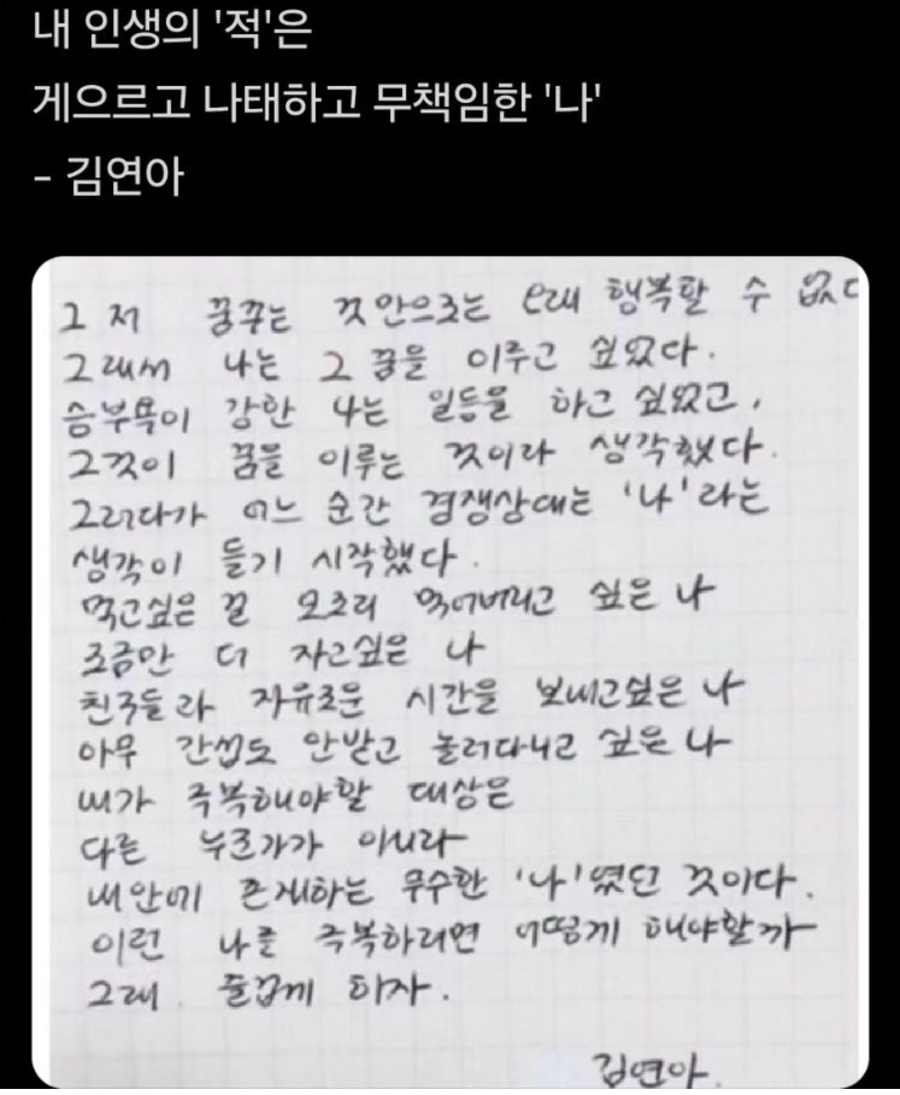 내 인생의 '적'은
게으르고 나태하고 무책임한 '나'
- 김연아
그저 꿈꾸는 것만으로는 오래 행복할 수 없다
그래서 나는 그 꿈을 이루고 싶었다.
승부욕이 강한 나는 일등을 하고 싶었고,
그것이 꿈을 이루는 것이라 생각했다.
그러다가 어느 순간 경쟁상대는 '나'라는
생각이 들기 시작했다.
먹고싶은 걸 모조리 먹어버리고 싶은 나
조금만 더 자고싶은 나
친구들과 자유로운 시간을 보내고싶은 나
아무 간섭도 안받고 놀러다니고 싶은 나
내가 극복해야할 대상은
다른 누군가가 아니라
내안에 존재하는 무수한 '나'였던 것이다.
이런 나를 극복하려면 어떻게 해야할까
그래. 즐겁게 하자.
김연아.